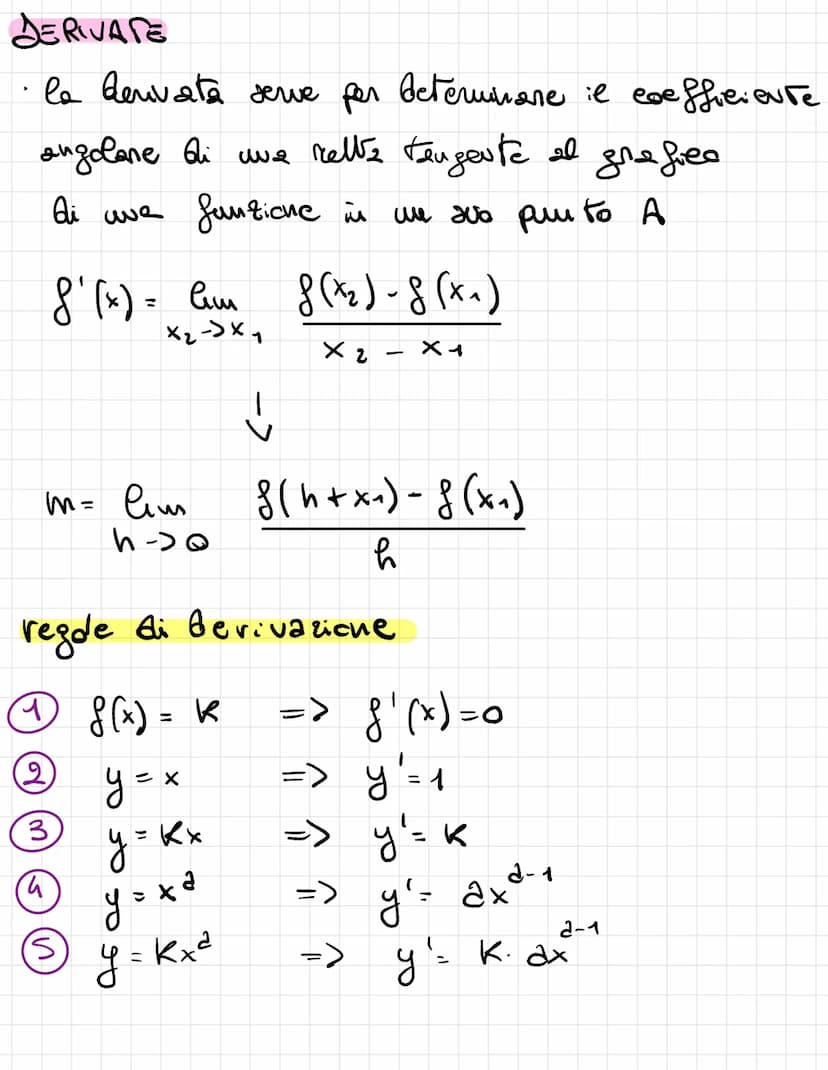 DERIVATE
· la derivata serve per determinare il coefficiente
angolare di una retta tangente al grafico
di una funzione in un suo punto A
f'(x) = lim x₂->x₁ (f(x₂) - f(x₁)) / (x₂ - x₁)
↓
m = lim h->0 (f(h+x₁) - f(x₁)) / h
regole di derivazione
① f(x) = K => f'(x)=0
② y = x => y'= 1
③ y = Kx => y'= K
④ y = x^a => y'= ax^(a-1)
⑤ y = Kx^a => y'= K· ax^(a-1)